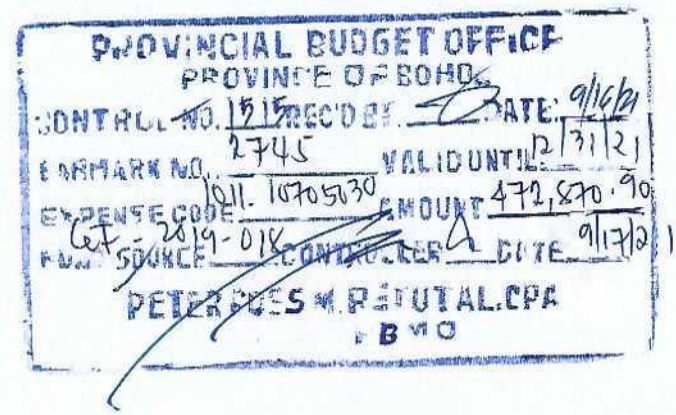 PROVINCIAL BUDGET OFFICE
PROVINCE OF BOHOL
CONTROL NO. 1515 REC'D BY. DATE: 9/16/21
EARMARK NO. 2745 VALID UNTIL: 12/31/21
EXPENSE CODE 1011-10705030 AMOUNT 472,870.90
FUND SOURCE 2019-018 CONTROLLER DATE 9/17/21
PETER M. CPA
PBMO